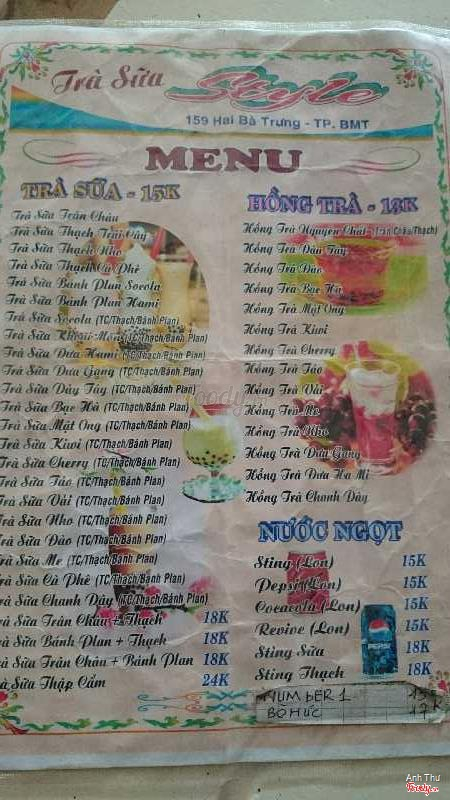 Trà Sữa Style
159 Hai Bà Trưng - TP. BMT
MENU
TRÀ SỮA - 15K
Trà Sữa Trân Châu
Trà Sữa Thạch Trái Cây
Trà Sữa Thạch Nho
Trà Sữa Thạch Cà Phê
Trà Sữa Bánh Plan Socola
Trà Sữa Bánh Plan Hami
Trà Sữa Socola (TC/Thạch/Bánh Plan)
Trà Sữa Khoai Môn (TC/Thạch/Bánh Plan)
Trà Sữa Dưa Hami (TC/Thạch/Bánh Plan)
Trà Sữa Dưa Gang (TC/Thạch/Bánh Plan)
Trà Sữa Dâu Tây (TC/Thạch/Bánh Plan)
Trà Sữa Bạc Hà (TC/Thạch/Bánh Plan)
Trà Sữa Mật Ong (TC/Thạch/Bánh Plan)
Trà Sữa Kiwi (TC/Thạch/Bánh Plan)
Trà Sữa Cherry (TC/Thạch/Bánh Plan)
Trà Sữa Táo (TC/Thạch/Bánh Plan)
Trà Sữa Vải (TC/Thạch/Bánh Plan)
rà Sữa Nho (TC/Thạch/Bánh Plan)
rà Sữa Đào (TC/Thạch/Bánh Plan)
rà Sữa Me (TC/Thạch/Bánh Plan)
rà Sữa Cà Phê (TC/Thạch/Bánh Plan)
rà Sữa Chanh Dây (TC/Thạch/Bánh Plan)
rà Sữa Trân Châu + Thạch 18K
rà Sữa Bánh Plan + Thạch 18K
rà Sữa Trân Châu + Bánh Plan 18K
rà Sữa Thập Cẩm 24K
HỒNG TRÀ - 13K
Hồng Trà Nguyên Chất - (Trân Châu/Thạch)
Hồng Trà Dâu Tây
Hồng Trà Đào
Hồng Trà Bạc Hà
Hồng Trà Mật Ong
Hồng Trà Kiwi
Hồng Trà Cherry
Hồng Trà Táo
Hồng Trà Vải
Hồng Trà Me
Hồng Trà Nho
Hồng Trà Dưa Gang
Hồng Trà Dưa Ha Mi
Hồng Trà Chanh Dây
NƯỚC NGỌT
Sting (Lon) 15K
Pepsi (Lon) 15K
Cocacola (Lon) 15K
Revive (Lon) 15K
Sting Sữa 18K
Sting Thạch 18K
NUMBER 1
BÒ HÚC 17K
PEPSI
foody
Anh Thư
Foody.vn